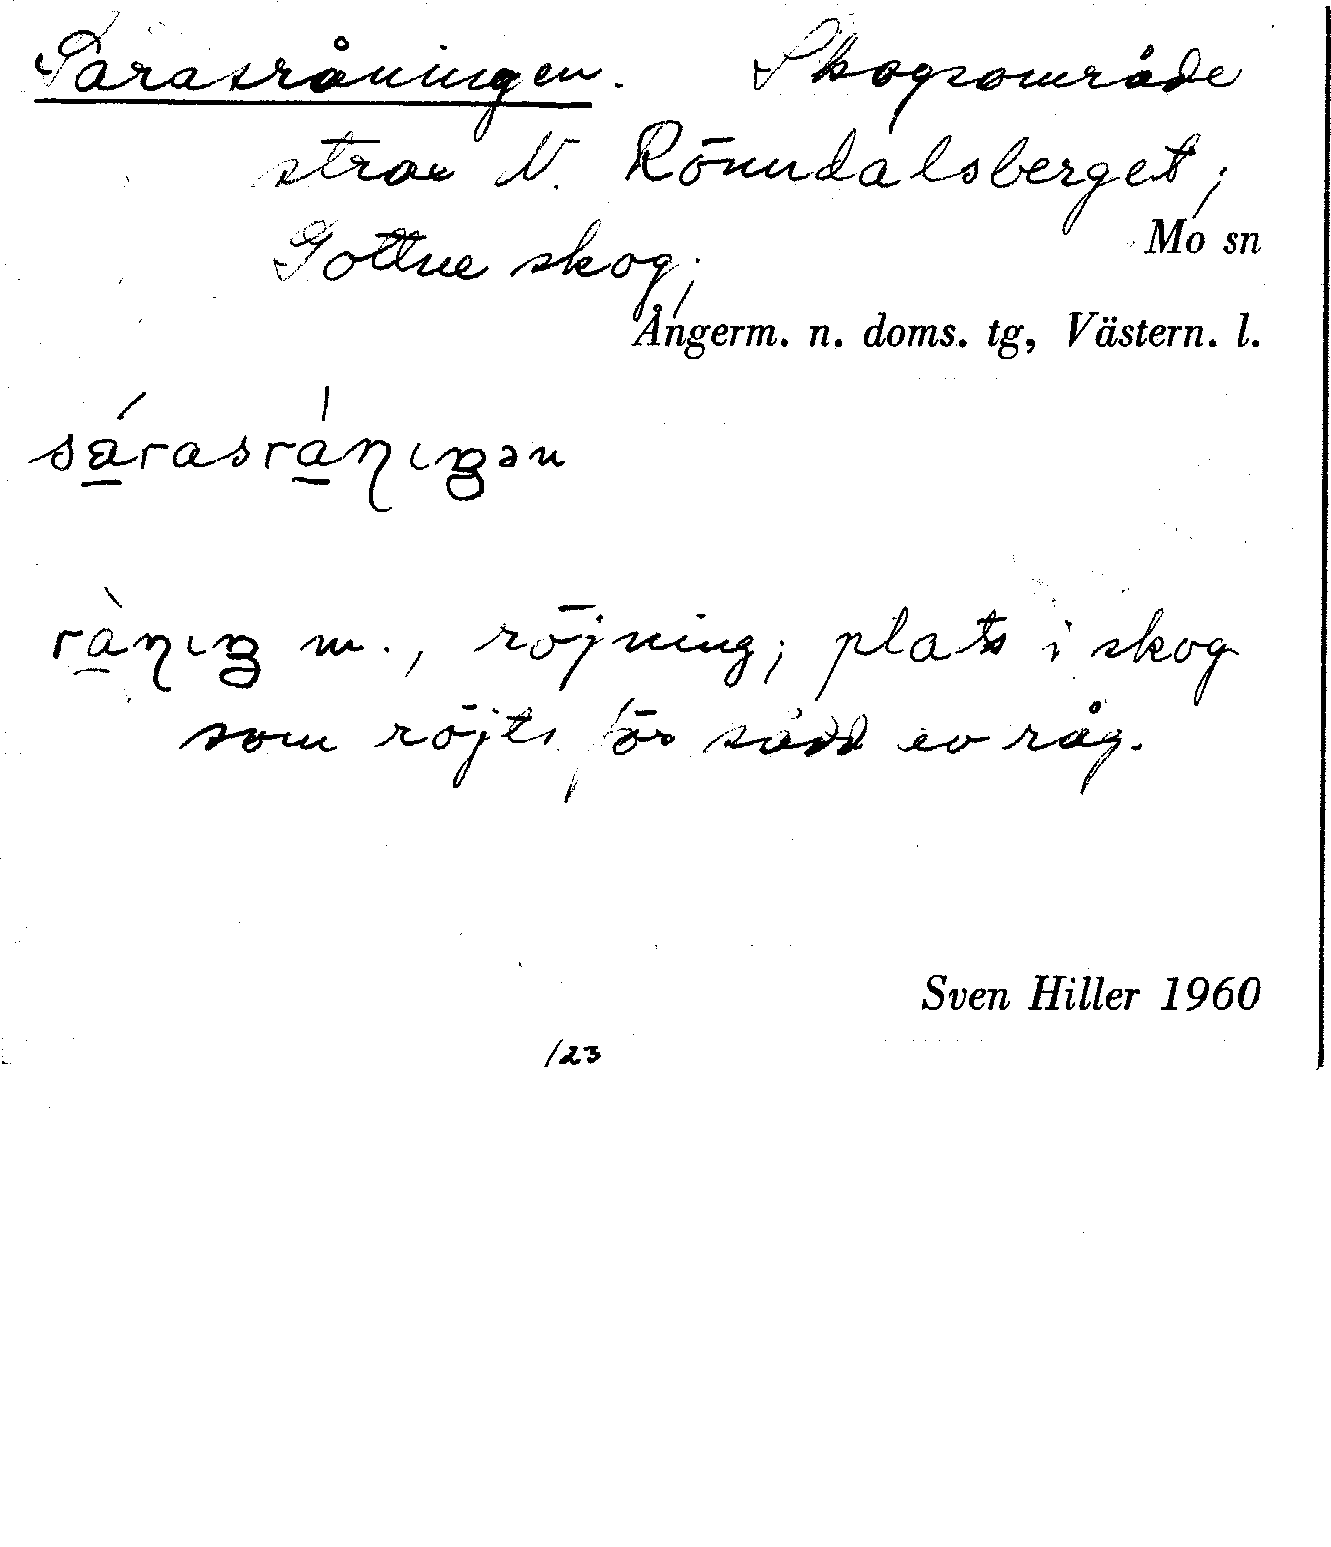 Sarasråningen. Skogsområde
strax N. Rönndalsberget;
Mo sn
Gottne skog;
Ångerm. n. doms. tg, Västern. l.
sárasránıŋən
rànıŋ m., röjning; plats i skog
som röjts för sådd av råg.
Sven Hiller 1960
123